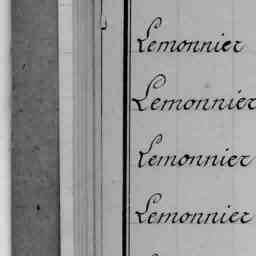 Lemonnier
Lemonnier
Lemonnier
Lemonnier